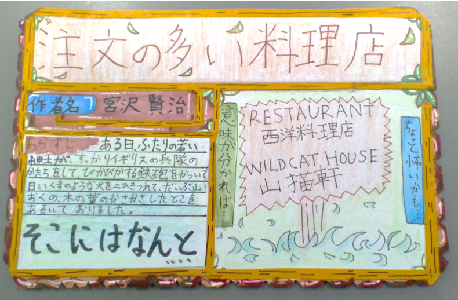 注文の多い料理店
作者名 宮沢 賢治
あらすじ… ある日、ふたりの若い
紳士が、すっかりイギリスの兵隊の
かたちをして、ぴかぴかする鉄砲をかついで
白いくまのような犬を二ひきつれて、だいぶ山
おくの、木の葉のかさかさしたとこを
あるいて おりました。
そこにはなんと....
意味が分かれば…
RESTAURANT
西洋料理店
WILDCAT HOUSE
山猫軒
ちょっと怖いかも…